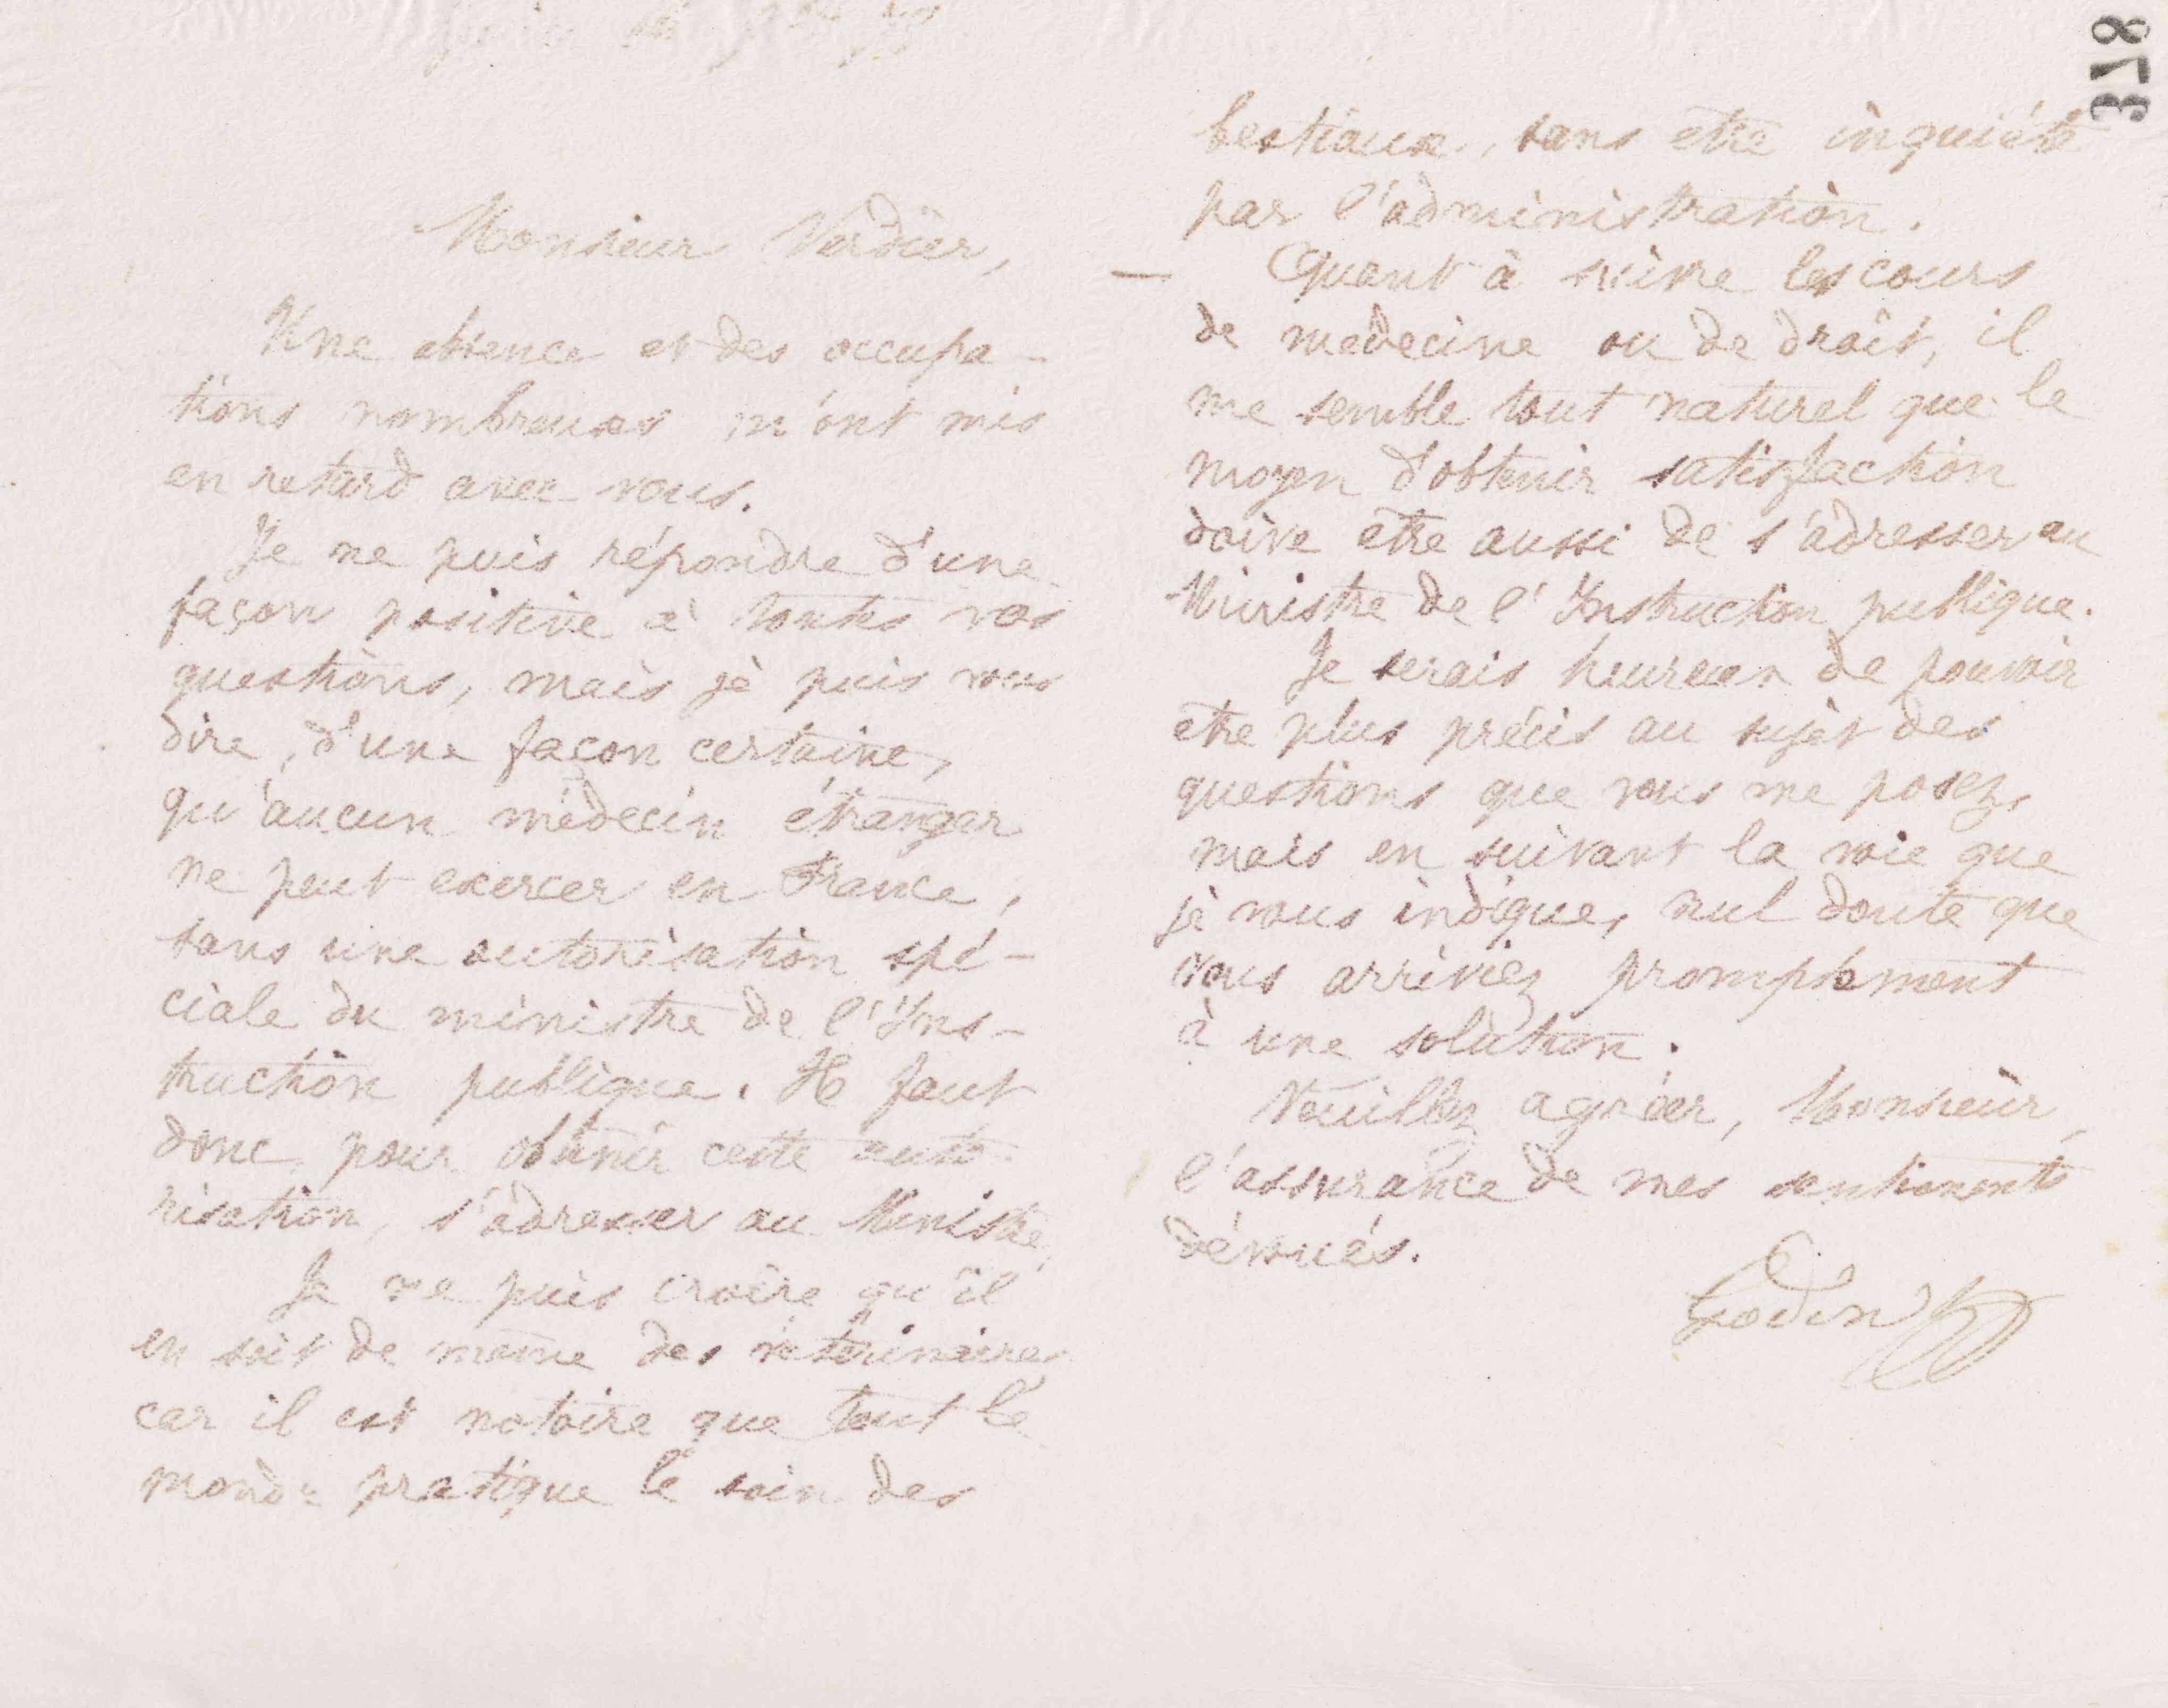 Monsieur Verdier,
Une absence et des occupa-
tions nombreuses m'ont mis
en retard avec vous.
Je ne puis répondre d'une
façon positive à toutes vos
questions, mais je puis vous
dire, d'une façon certaine,
qu'aucun médecin étranger
ne peut exercer en France,
sans une autorisation spé-
ciale du ministre de l'Ins-
truction publique. Il faut
donc, pour obtenir cette auto-
risation, s'adresser au Ministre.
Je ne puis croire qu'il
en soit de même des vétérinaires
car il est notoire que tout le
monde pratique le soin des
328
bestiaux, sans etre inquiété
par l'administration.
— Quant à suivre les cours
de médecine ou de droit, il
me semble tout naturel que le
moyen d'obtenir satisfaction
doive etre aussi de s'adresser au
Ministre de l'Instruction publique.
Je serais heureux de pouvoir
etre plus précis au sujet des
questions que vous me posez,
mais en suivant la voie que
je vous indique, nul doute que
vous arriviez promptement
à une solution.
Veuillez agréer, Monsieur,
l'assurance de mes sentiments
dévoués.
Godin